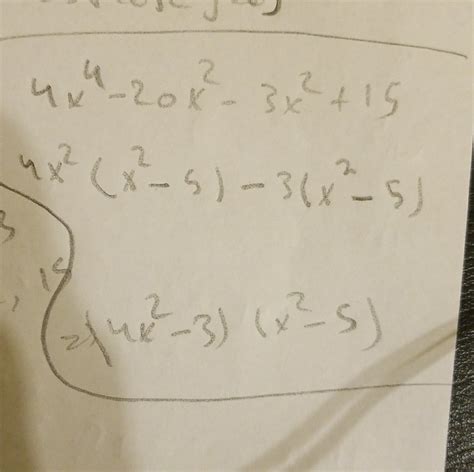 4x⁴-20x²-3x²+15
4x²(x²-5)-3(x²-5)
=(4x²-3)(x²-5)